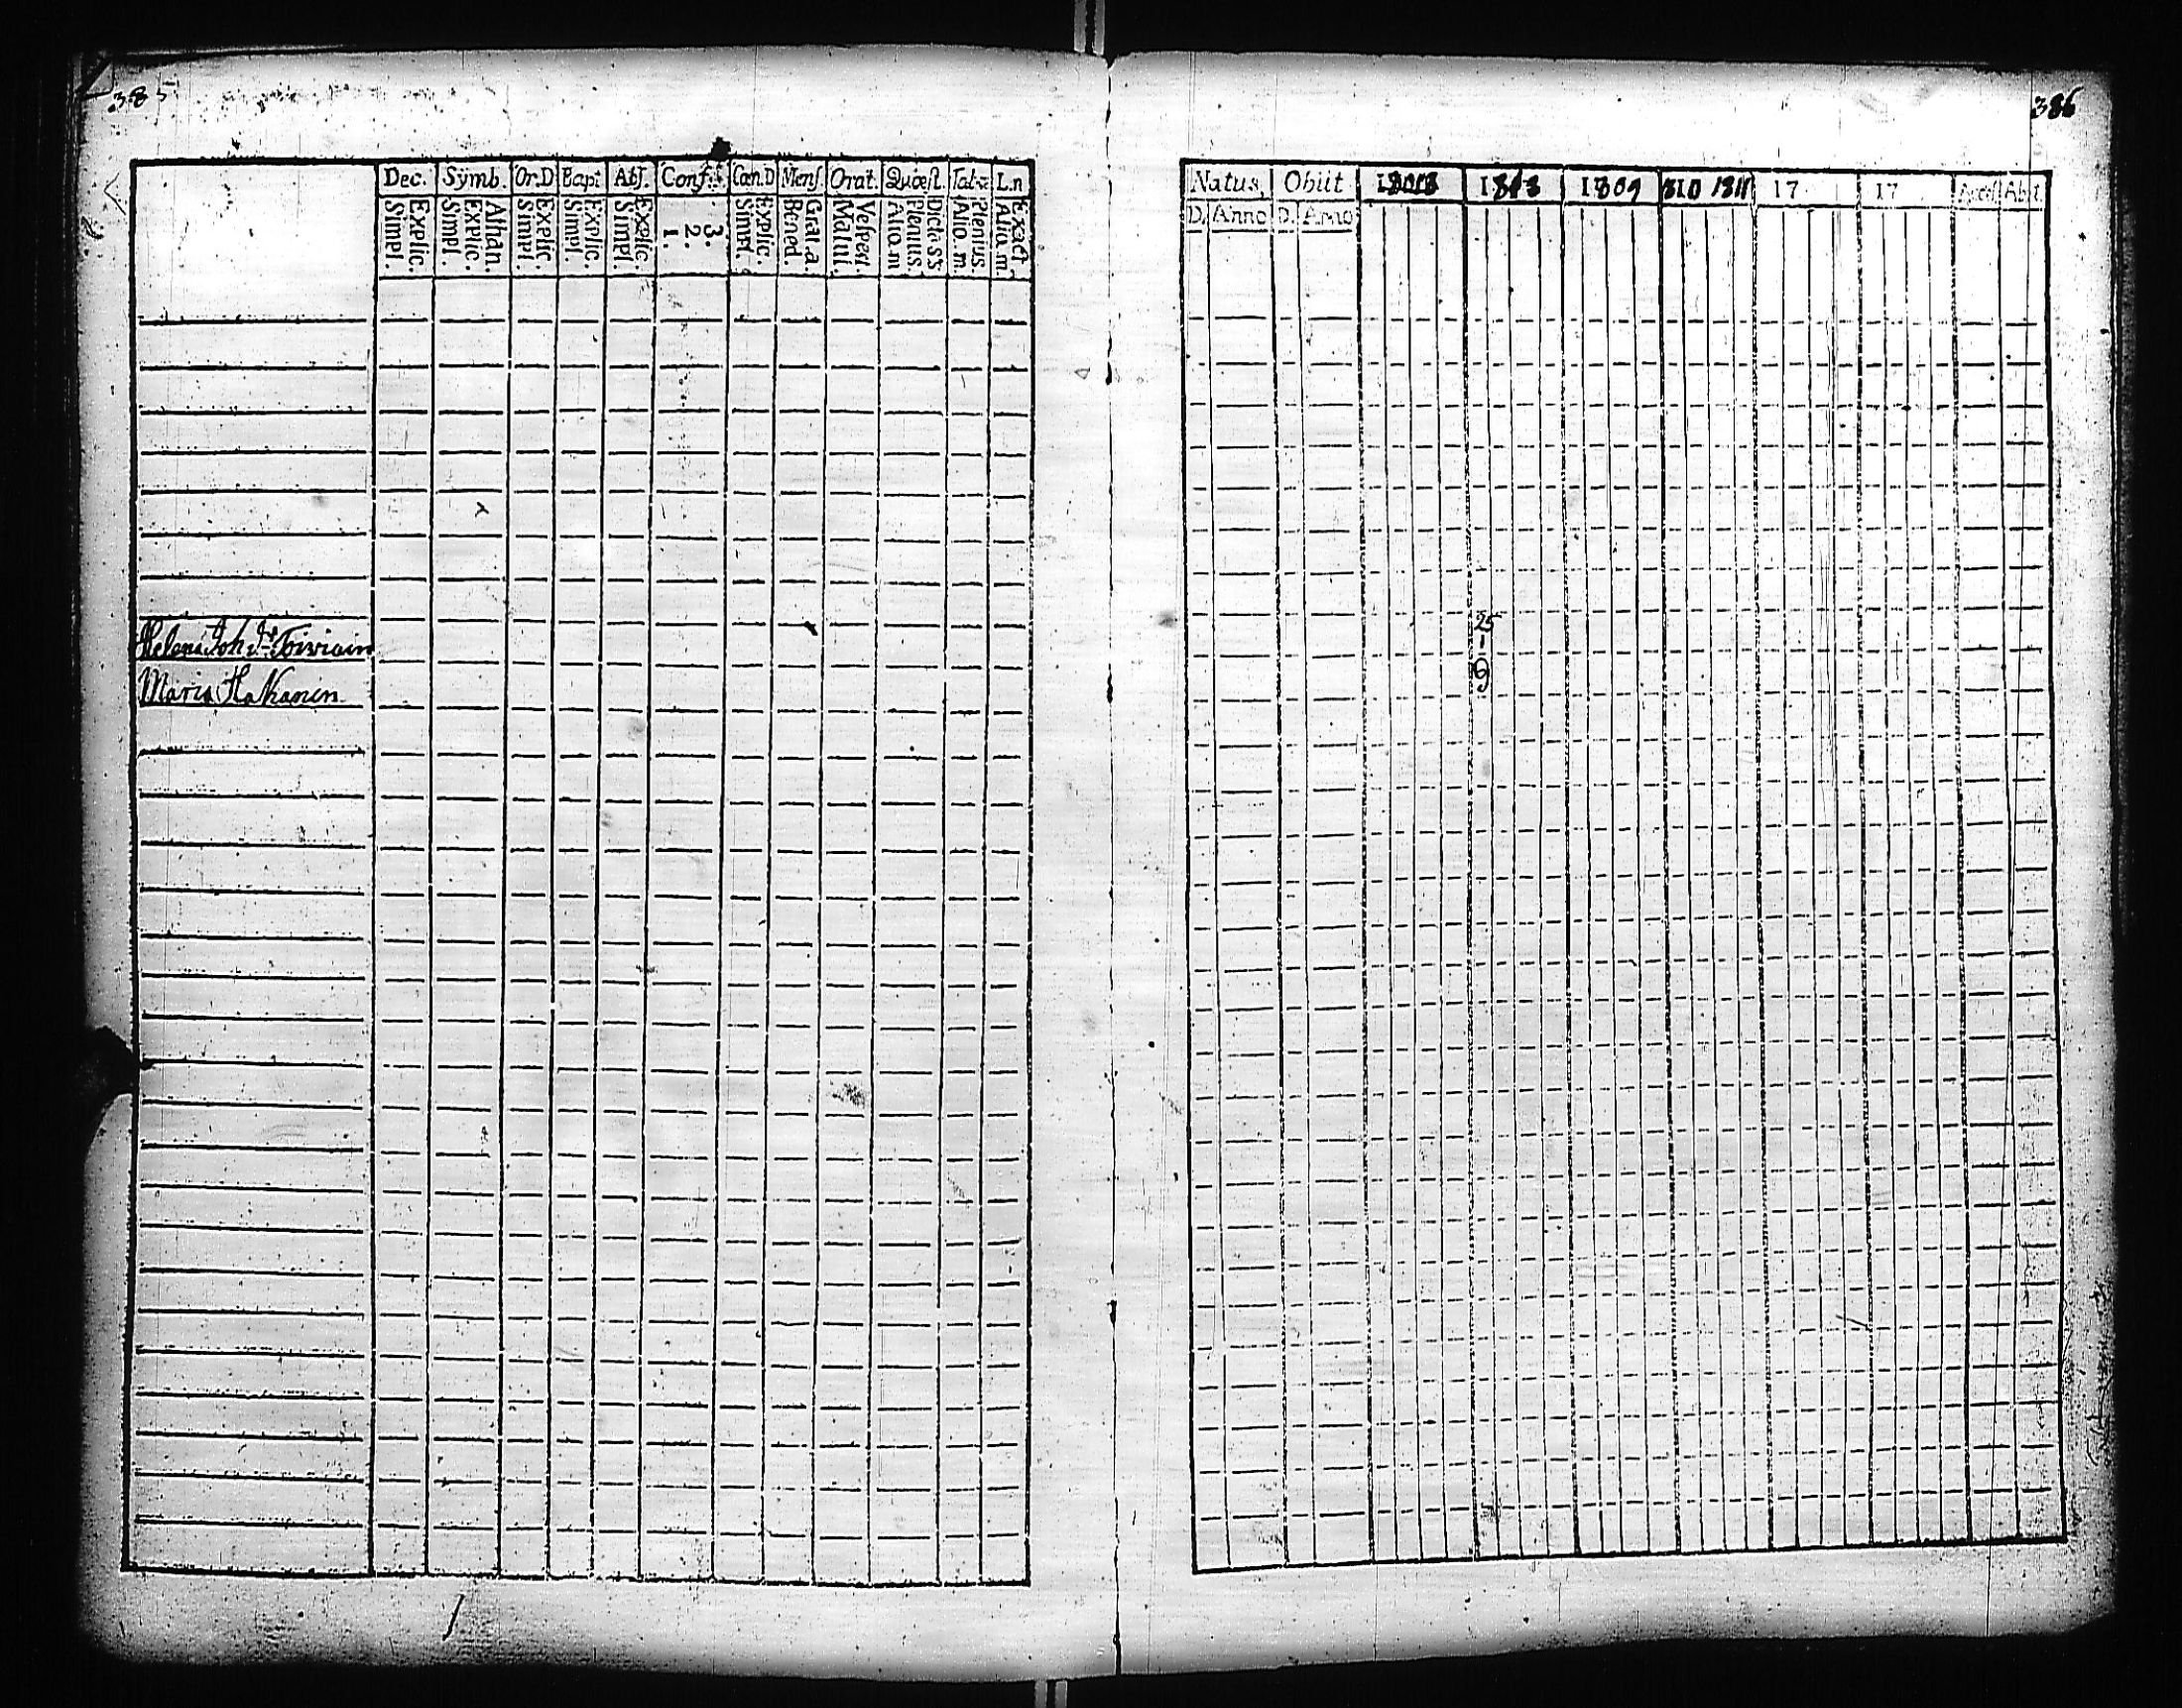 385
Dec. Symb. Or.D Bapt Abs. Conf. Cœn.D Mens Orat. Quæst. Tab.æ L.n
Explic. Simpl.
Athan. Explic. Simpl.
Explic. Simpl.
Explic. Simpl.
Explic. Simpl.
3. 2. 1.
Explic. Simpl.
Grat. a. Bened.
Vesperi. Matuti.
Dictass Plenius. Alio. m
Plenius. Alio. m.
Exact. Alio. m.
Helena Joh. dr Toiviain
Maria Hakanen
386
Natus, Obiit 1809 810 1811 17 17 Abiit.
D. Anno D. Anno
25
1
9